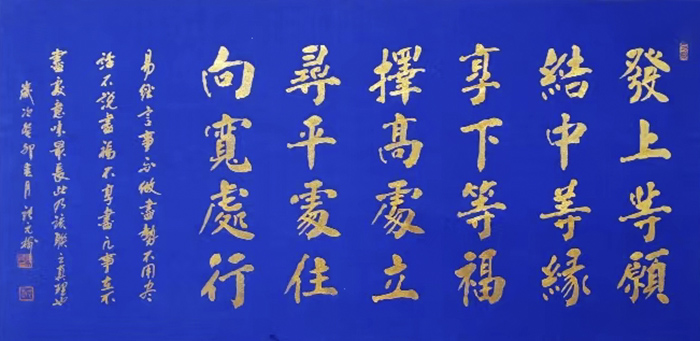 發上等願
結中等緣
享下等福
擇高處立
尋平處住
向寬處行
易經言事不做盡勢不用盡
話不說盡福不享盡凡事在不
盡處意味最長此乃該聯之真理也
歲次癸卯春月